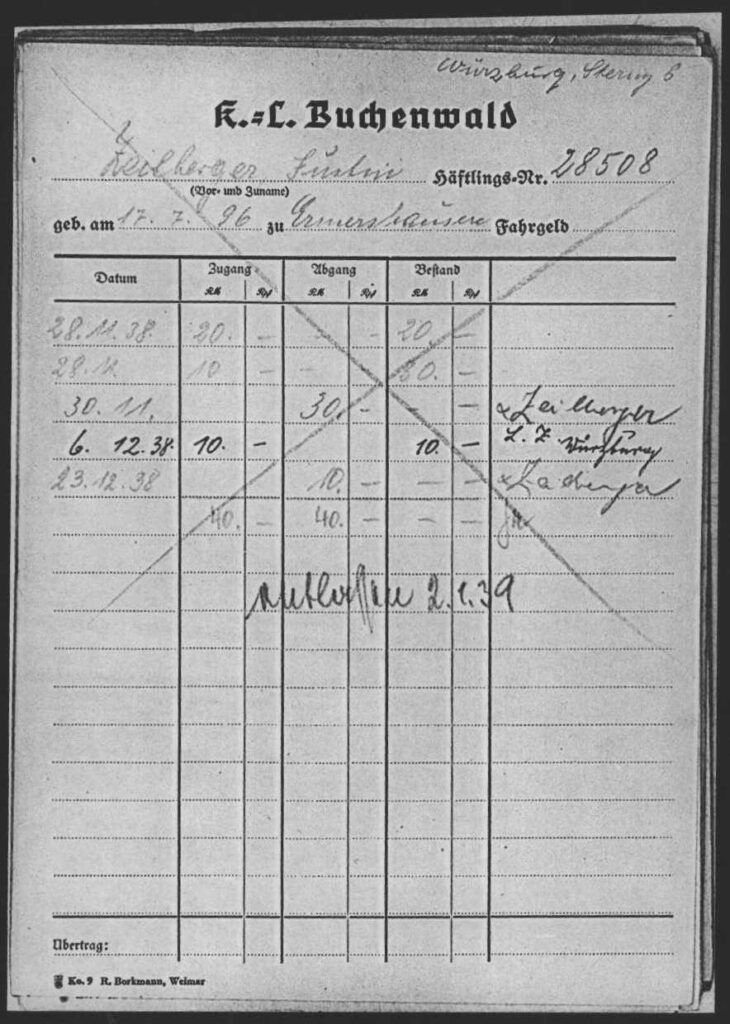 Würzburg, Sterng 6
K.=L. Buchenwald
Zeilberger Justin Häftlings-Nr. 28508
(Vor- und Zuname)
geb. am 17. 7. 96 zu Ermershausen Fahrgeld
Datum Zugang Abgang Bestand
RM Rpf RM Rpf RM Rpf
28.11.38. 20. — - - 20. —
28.11 10 — - - 30. —
30. 11. 30. - - — Zeilberger
6. 12.38. 10. — 10. — L. Z. Würzburg
23.12.38 10. — — — Zeilberger
40. — 40. — — —
entlassen 2.1.39
Übertrag:
Ko. 9 R. Borkmann, Weimar